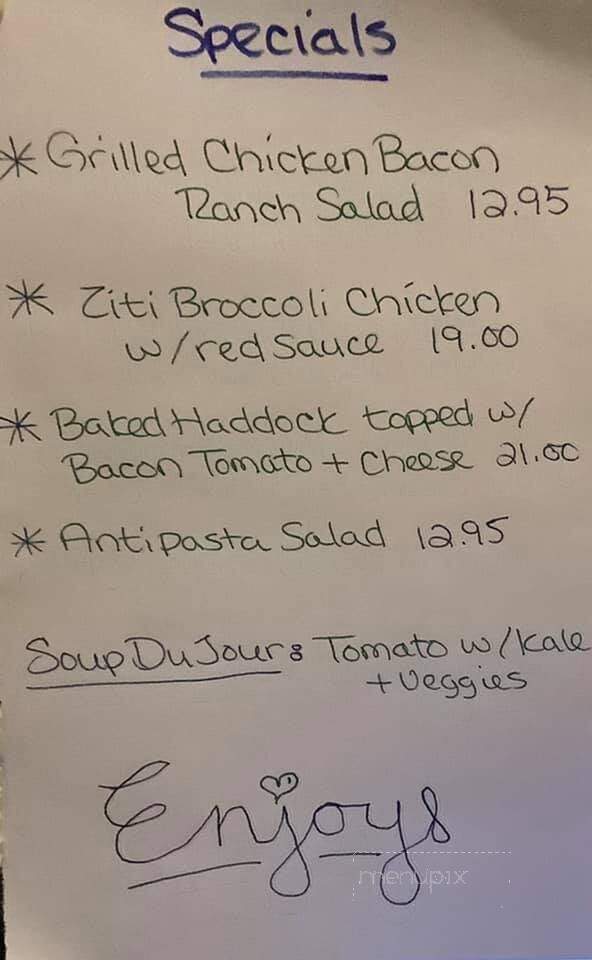 Specials
* Grilled Chicken Bacon
Ranch Salad 12.95
* Ziti Broccoli Chicken
w/red Sauce 19.00
* Baked Haddock topped w/
Bacon Tomato + Cheese 21.00
* Antipasta Salad 12.95
Soup Du Jour: Tomato w/kale
+ Veggies
Enjoy!
menupix